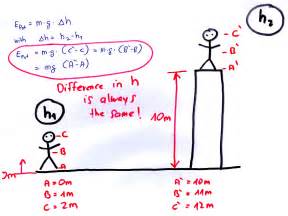 E_Pot = m·g·Δh
with Δh = h₂-h₁
E_Pot = m·g·(C'-C) = m·g·(B'-B)
= mg (A'-A)
Difference in h
is always
the same!
h₁
h₂
C'
B'
A'
10m
C
B
A
2m
A = 0m
B = 1m
C = 2m
A' = 10m
B' = 11m
C' = 12m